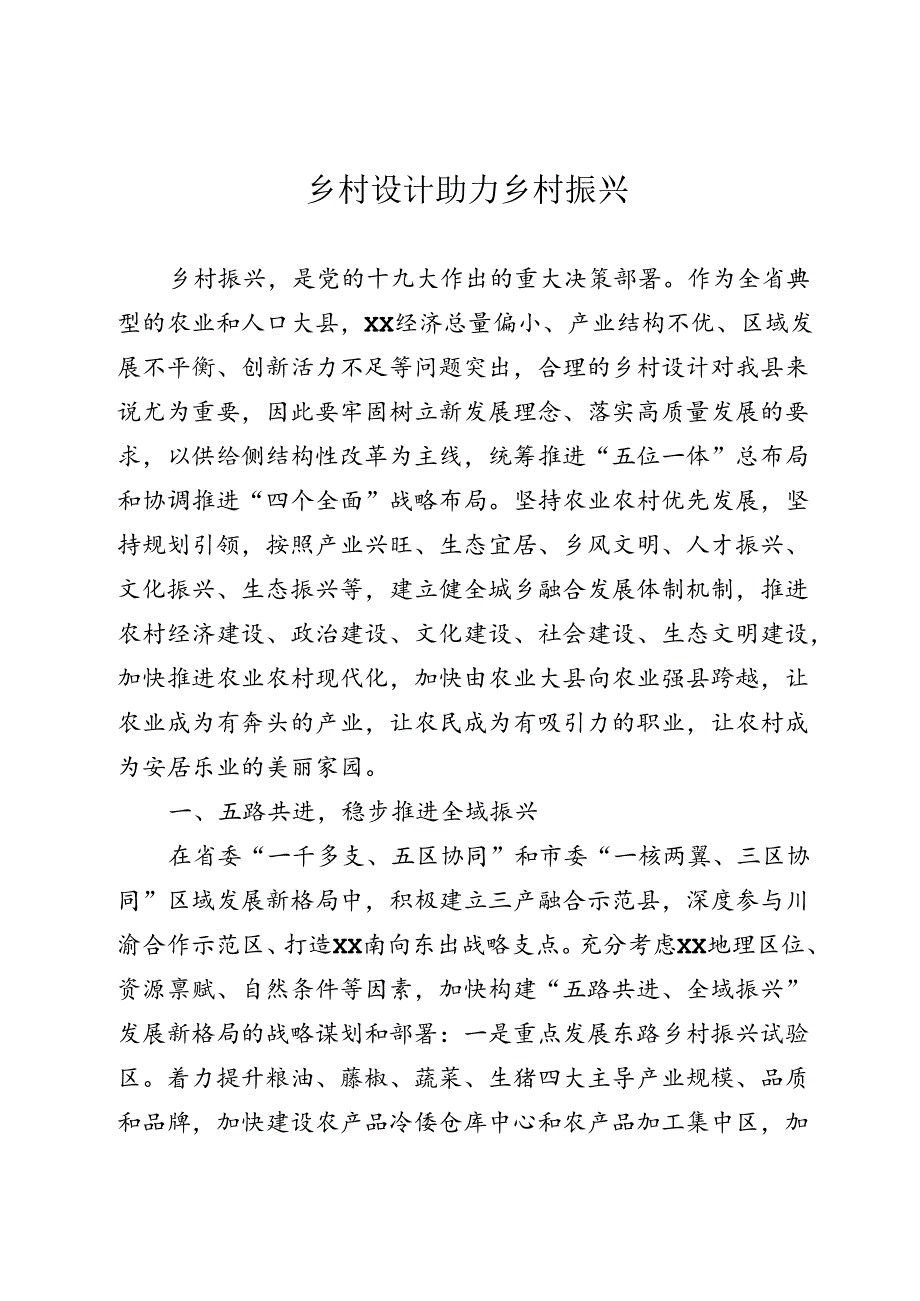 乡村设计助力乡村振兴
乡村振兴，是党的十九大作出的重大决策部署。作为全省典
型的农业和人口大县，xx经济总量偏小、产业结构不优、区域发
展不平衡、创新活力不足等问题突出，合理的乡村设计对我县来
说尤为重要，因此要牢固树立新发展理念、落实高质量发展的要
求，以供给侧结构性改革为主线，统筹推进“五位一体”总布局
和协调推进“四个全面”战略布局。坚持农业农村优先发展，坚
持规划引领，按照产业兴旺、生态宜居、乡风文明、人才振兴、
文化振兴、生态振兴等，建立健全城乡融合发展体制机制，推进
农村经济建设、政治建设、文化建设、社会建设、生态文明建设，
加快推进农业农村现代化，加快由农业大县向农业强县跨越，让
农业成为有奔头的产业，让农民成为有吸引力的职业，让农村成
为安居乐业的美丽家园。
一、五路共进，稳步推进全域振兴
在省委“一千多支、五区协同”和市委“一核两翼、三区协
同”区域发展新格局中，积极建立三产融合示范县，深度参与川
渝合作示范区、打造xx南向东出战略支点。充分考虑xx地理区位、
资源禀赋、自然条件等因素，加快构建“五路共进、全域振兴”
发展新格局的战略谋划和部署：一是重点发展东路乡村振兴试验
区。着力提升粮油、藤椒、蔬菜、生猪四大主导产业规模、品质
和品牌，加快建设农产品冷倭仓库中心和农产品加工集中区，加